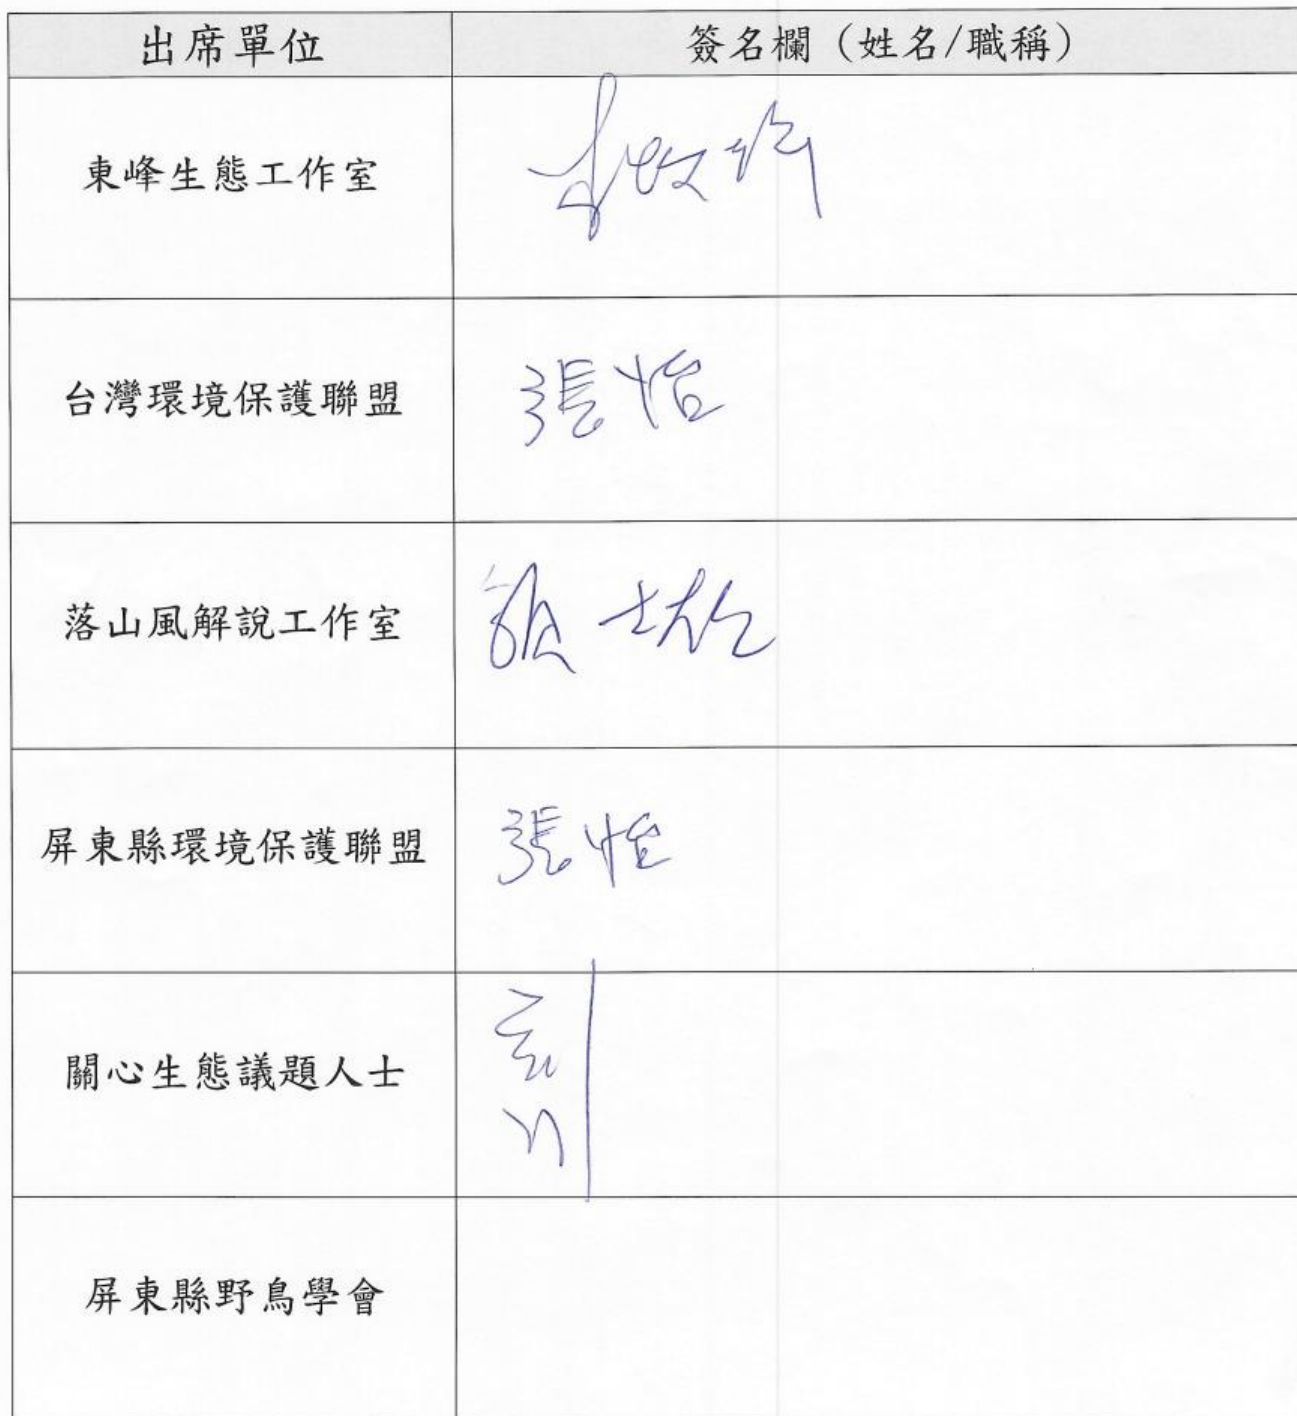 出席單位 簽名欄（姓名/職稱）
東峰生態工作室
台灣環境保護聯盟 張怡
落山風解說工作室
屏東縣環境保護聯盟 張怡
關心生態議題人士
屏東縣野鳥學會